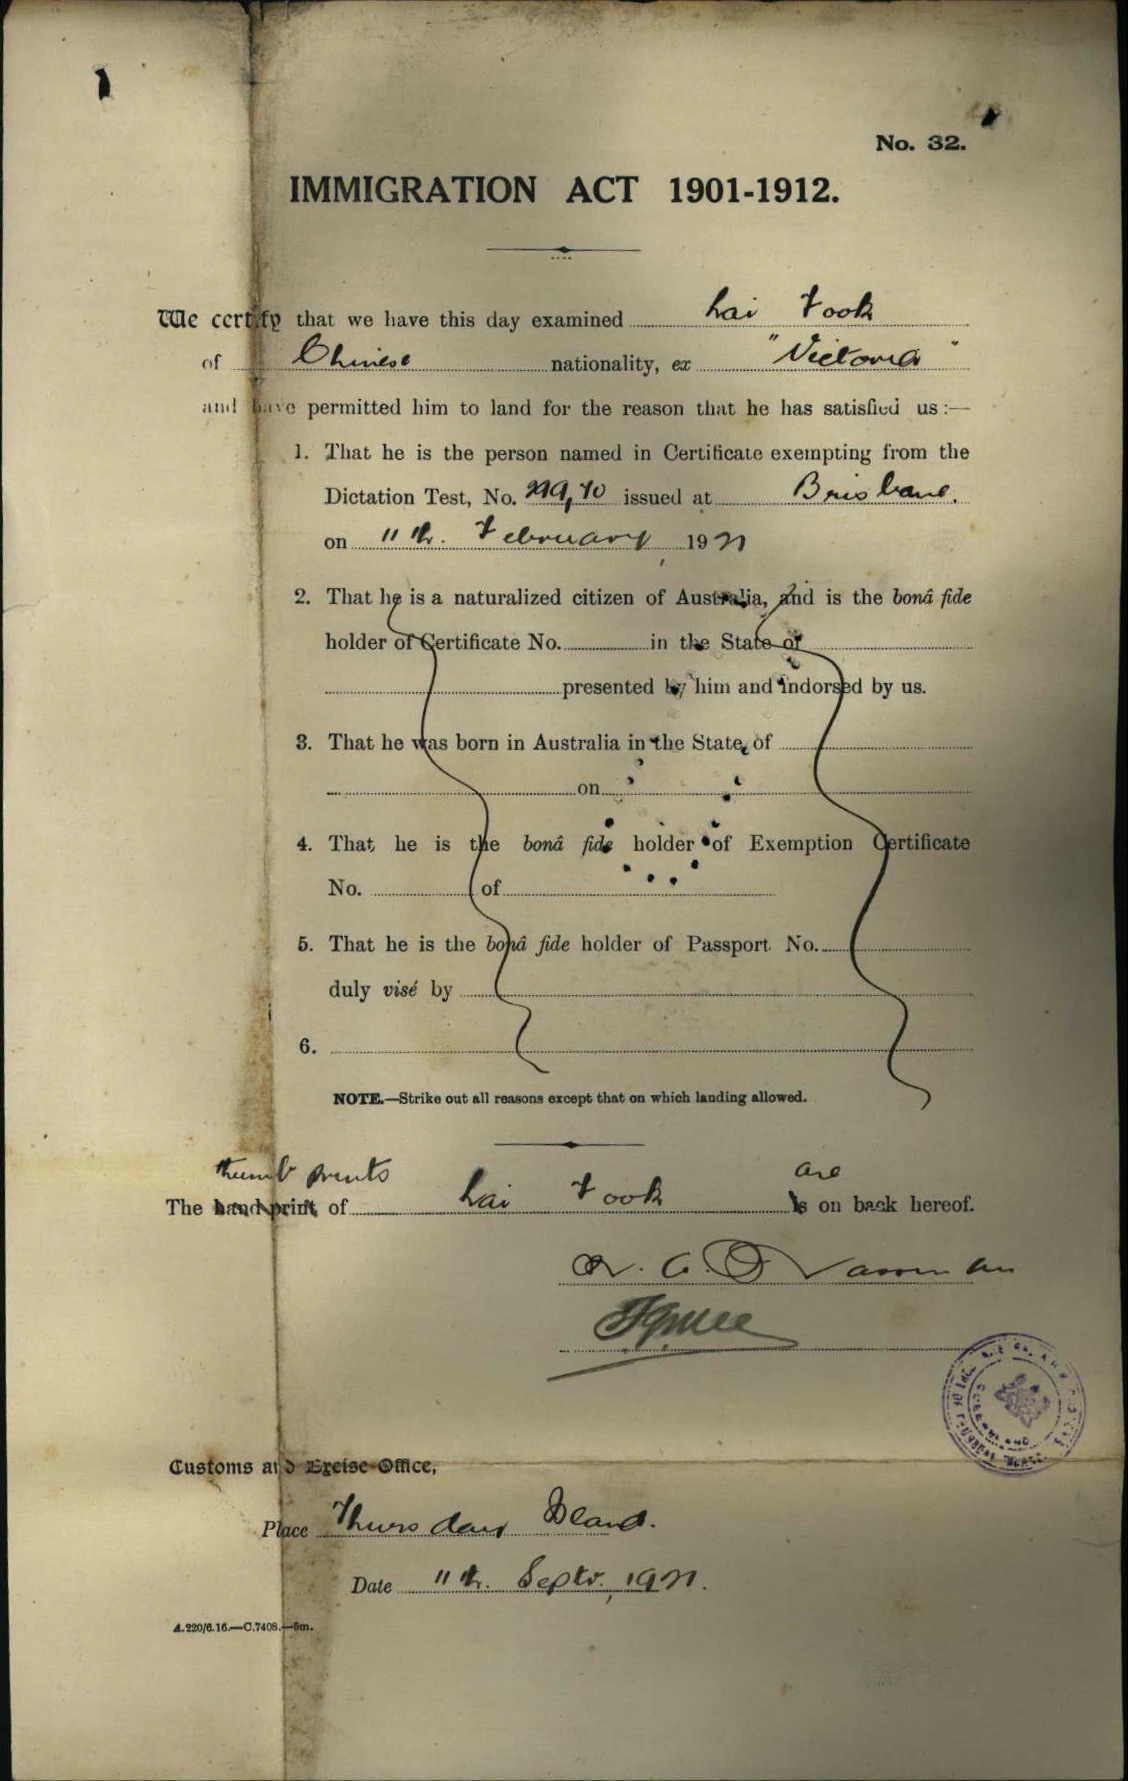 No. 32.
IMMIGRATION ACT 1901-1912.
We certify that we have this day examined Lai Fook
of Chinese nationality, ex "Victoria"
and have permitted him to land for the reason that he has satisfied us :—
1. That he is the person named in Certificate exempting from the
Dictation Test, No. issued at Brisbane.
on 11th. February 1921
2. That he is a naturalized citizen of Australia, and is the bonâ fide
holder of Certificate No. in the State of
presented by him and indorsed by us.
3. That he was born in Australia in the State of
on
4. That he is the bonâ fide holder of Exemption Certificate
No. of
5. That he is the bonâ fide holder of Passport No.
duly visé by
6.
NOTE.—Strike out all reasons except that on which landing allowed.
thumb prints are
The hand print of Lai Fook is on back hereof.
Customs and Excise Office,
Place Thursday Island.
Date 11th. Septr. 1921.
A.220/6.16.—C.7408.—5m.